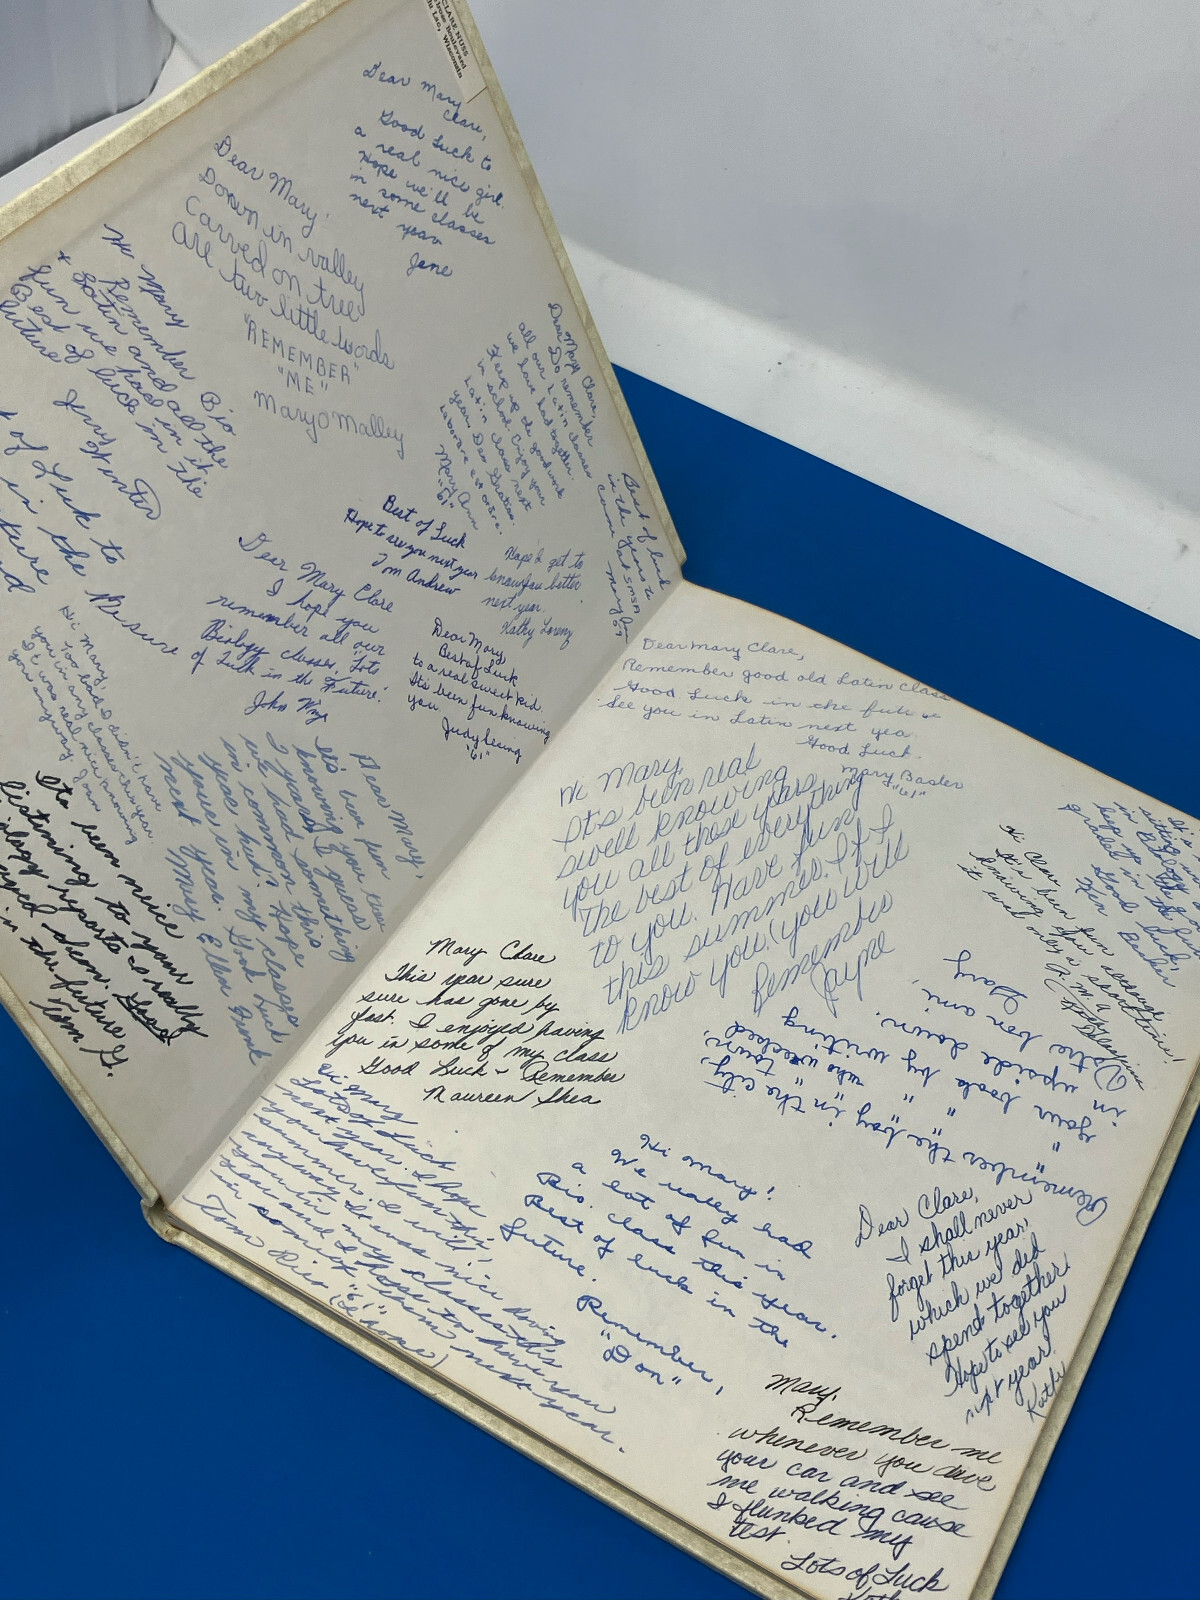 CLARE NUSS
Boulevard
du Lac, Wisconsin
Dear Mary
Clare,
Good Luck to
a real nice girl.
Hope we'll be
in some classes
next year
Jane
Dear Mary,
Down in valley
Carved on tree
are two little words
"REMEMBER"
"ME"
Mary O Malley
Hi Mary
Remember Bio
+ Latin and all the
fun we had in it.
Best of luck in the
future
Dear Mary Clare,
Do remember
all our Latin classes
we have had together.
Keep up the good work
in school. Enjoy your
Latin class next
year. Deo Gratias.
Laborare est orare.
Mary Ann
"61"
Best of luck
in the years to
come at SMSA
Best of Luck
Hope to see you next year
Tom Andrew
Hope I get to
know you better
next year.
Kathy Lorenz
Dear Mary Clare
I hope you
remember all our
Biology classes, "Lots
of Luck in the Future."
John
Dear Mary,
Best of Luck
to a real sweet kid.
It's been fun knowing
you
Judy
"61"
of Luck to
in the
Hi Mary,
Too bad I didn't have
you in any classes this year
It was real nice knowing
you anyway. Joan
Its been nice
listining to your
reports I really
them. Good
in the future
Tom G.
Dear Mary,
It's been fun
knowing you these
2 years. I guess
we had something
in common this
year huh? Hope
you're in my classes
next year. Good Luck
Mary Ellen
Dear Mary Clare,
Remember good old Latin Class
Good Luck in the future
See you in Latin next year
Good Luck.
Mary Basler
"61"
Hi Mary,
It's been real
swell knowing
you all these years
The best of everything
to you. Have fun
this summer. If I
know you (you will
Remember
Jayne
It's
sitting
in Biology
keep up the good
grades in the future
Good Luck,
Ken Basler
Hi Clare,
It's been fun
knowing you
Mary Clare
This year sure
sure has gone by
fast. I enjoyed having
you in some of my class
Good Luck - Remember
Maureen Shea
Remember the boy in the city,
" " " " town,
" " who wrecked
your book by writing
in upside down.
Votre bon ami,
Gary
Hi Mary
Lots of Luck
next year. I hope
you have fun this
summer. I will,
anyway. It was nice having
you in my classes this
year and I hope to have you
in some of them next year.
Tom
"61"
(I hope)
Hi Mary!
We really had
a lot of fun in
Bio. class this year.
Best of luck in the
future.
Remember,
"Don"
Dear Clare,
I shall never
forget this year,
which we did
spend together.
Hope to see you
next year.
Kathy
Mary,
Remember me
whenever you drive
your car and see
me walking cause
I flunked my
test.
Lots of Luck